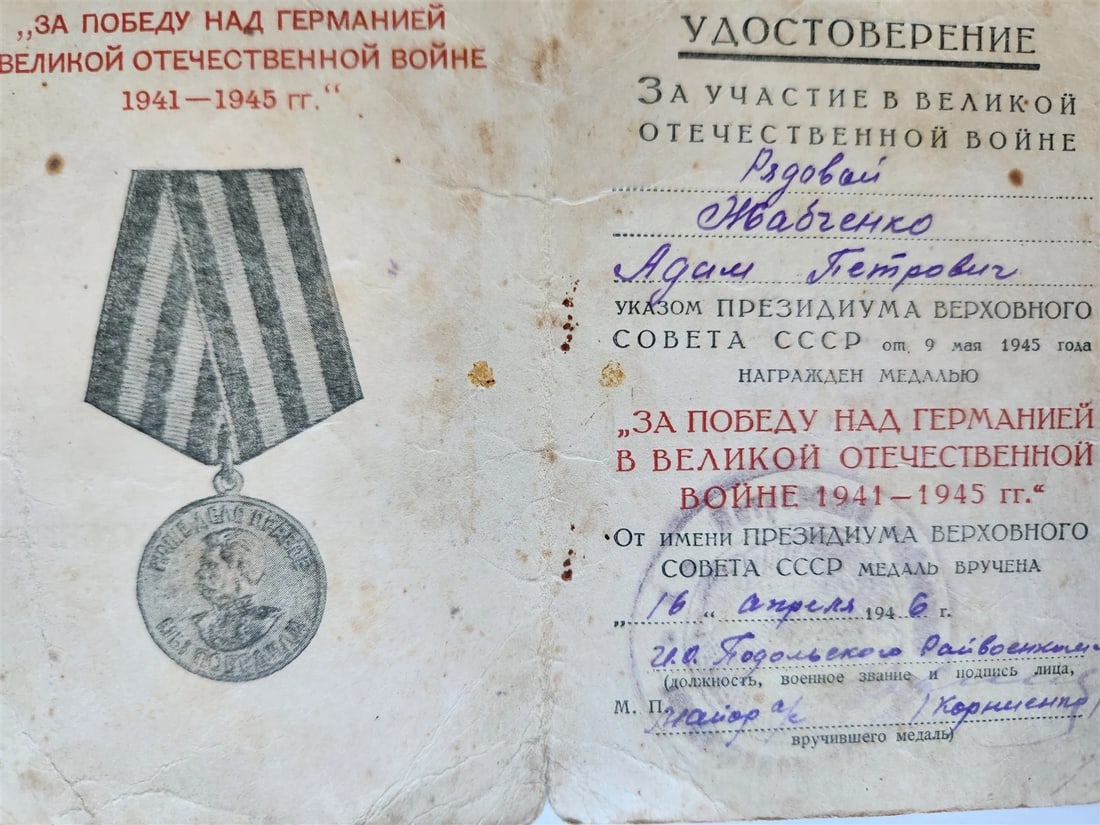 „ЗА ПОБЕДУ НАД ГЕРМАНИЕЙ
ВЕЛИКОЙ ОТЕЧЕСТВЕННОЙ ВОЙНЕ
1941—1945 гг.“
НАШЕ ДЕЛО ПРАВОЕ
МЫ ПОБЕДИЛИ
УДОСТОВЕРЕНИЕ
ЗА УЧАСТИЕ В ВЕЛИКОЙ
ОТЕЧЕСТВЕННОЙ ВОЙНЕ
Рядовой
Жабченко
Адам Петрович
УКАЗОМ ПРЕЗИДИУМА ВЕРХОВНОГО
СОВЕТА СССР от 9 мая 1945 года
НАГРАЖДЕН МЕДАЛЬЮ
„ЗА ПОБЕДУ НАД ГЕРМАНИЕЙ
В ВЕЛИКОЙ ОТЕЧЕСТВЕННОЙ
ВОЙНЕ 1941—1945 гг.“
ОТ ИМЕНИ ПРЕЗИДИУМА ВЕРХОВНОГО
СОВЕТА СССР МЕДАЛЬ ВРУЧЕНА
„16“ апреля 1946 г.
И.О. Подольского Райвоенком
(должность, военное звание и подпись лица,
М. П. Майор а/с (Корниенко)
вручившего медаль)